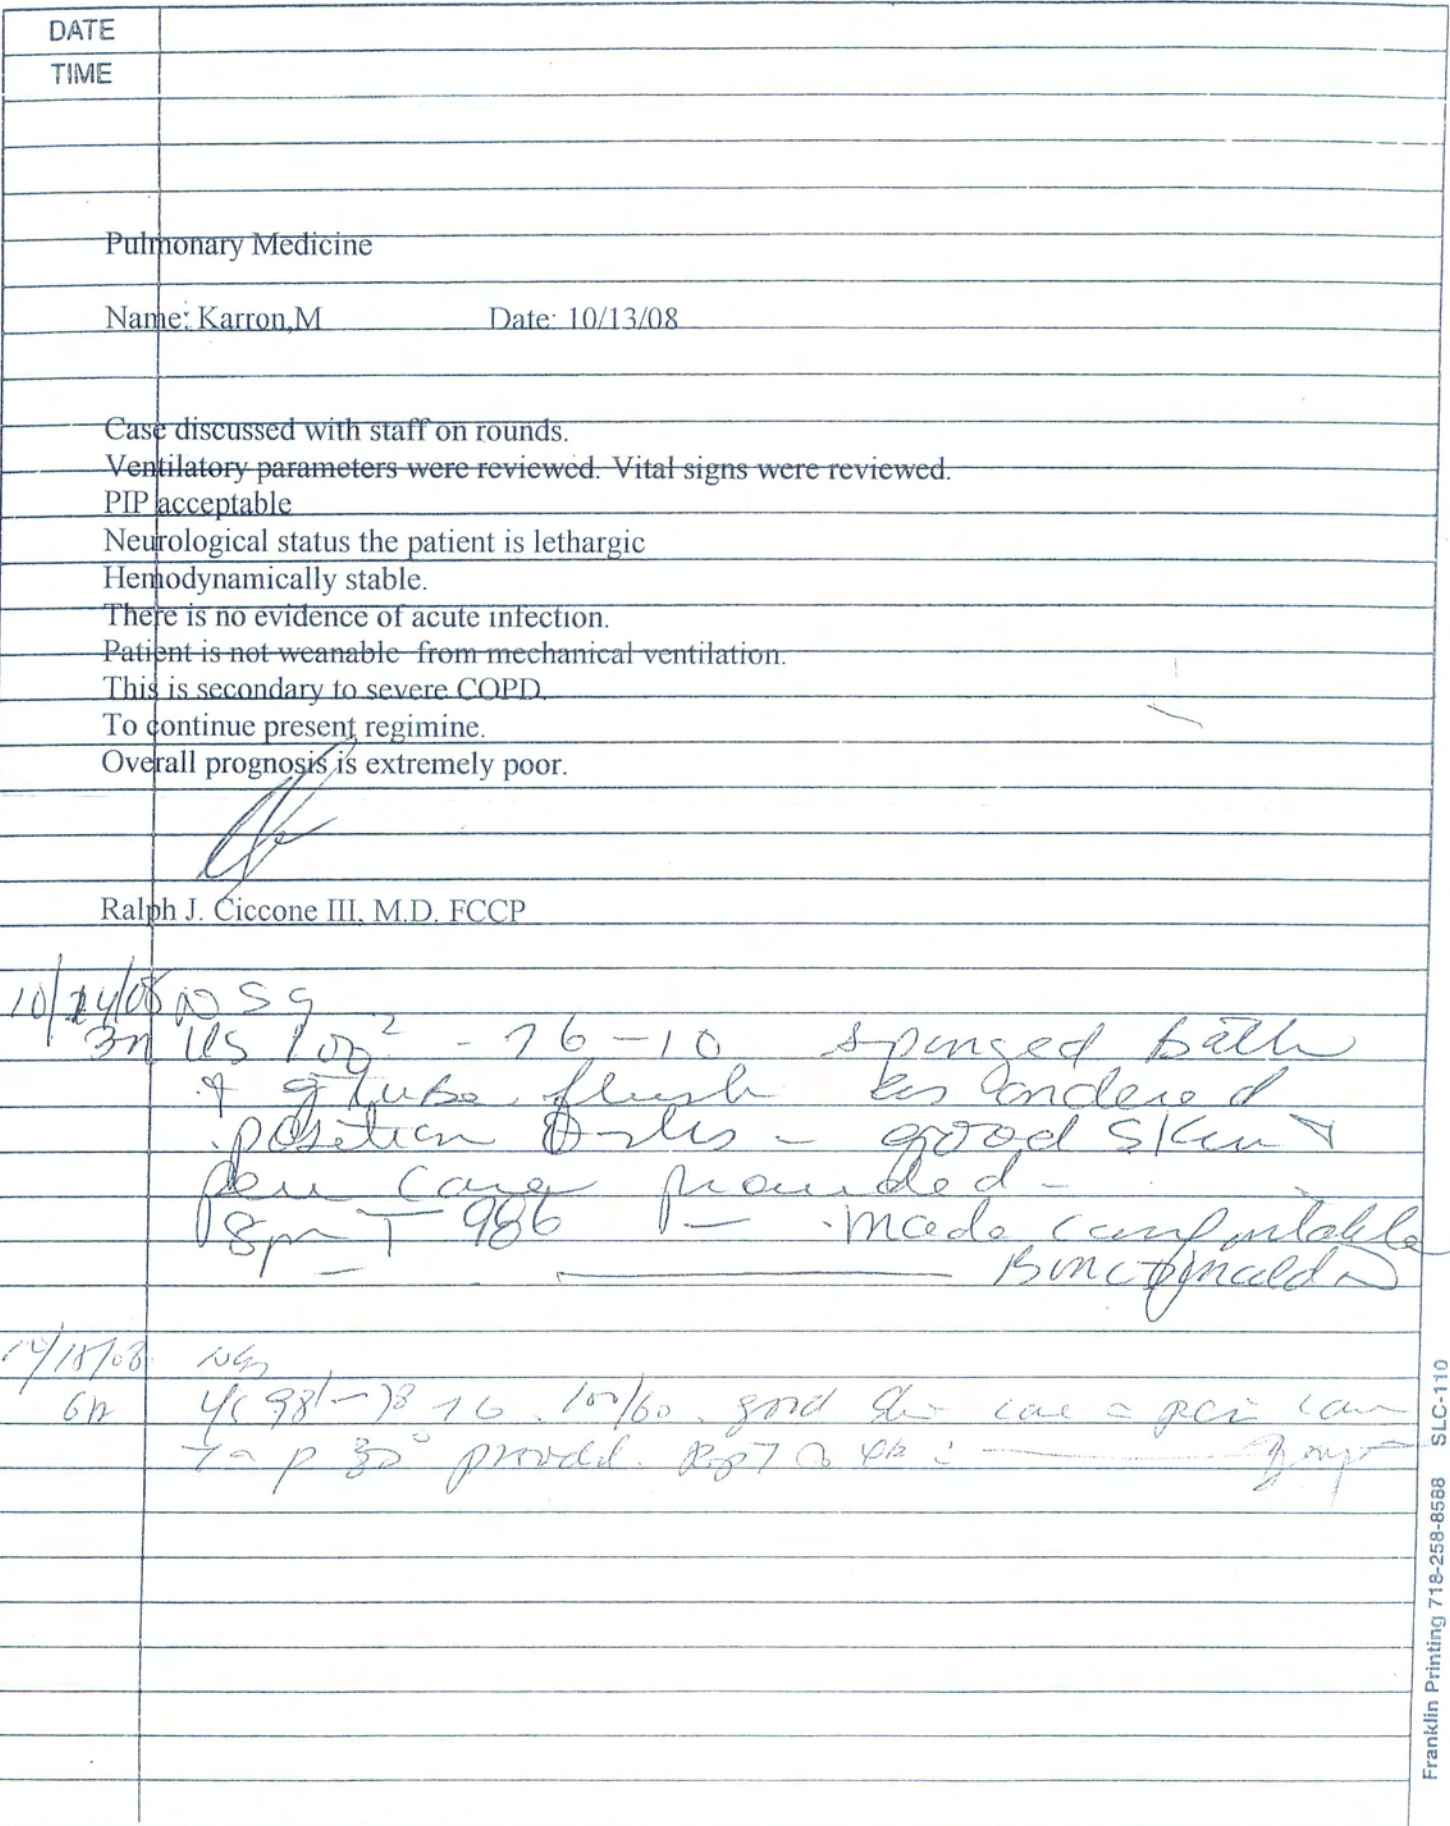 DATE
TIME
Pulmonary Medicine
Name: Karron,M Date: 10/13/08
Case discussed with staff on rounds.
Ventilatory parameters were reviewed. Vital signs were reviewed.
PIP acceptable
Neurological status the patient is lethargic
Hemodynamically stable.
There is no evidence of acute infection.
Patient is not weanable from mechanical ventilation.
This is secondary to severe COPD.
To continue present regimine.
Overall prognosis is extremely poor.
Ralph J. Ciccone III, M.D. FCCP
10/14/08 NSG
- 76 - 10 sponged bath
& g tube flush as ordered
position - good skin &
peri care provided -
8pm T 986 - made comfortable
10/15/08 NSG
76 100/60 good care peri care
30° provided.
Franklin Printing 718-258-8588 SLC-110